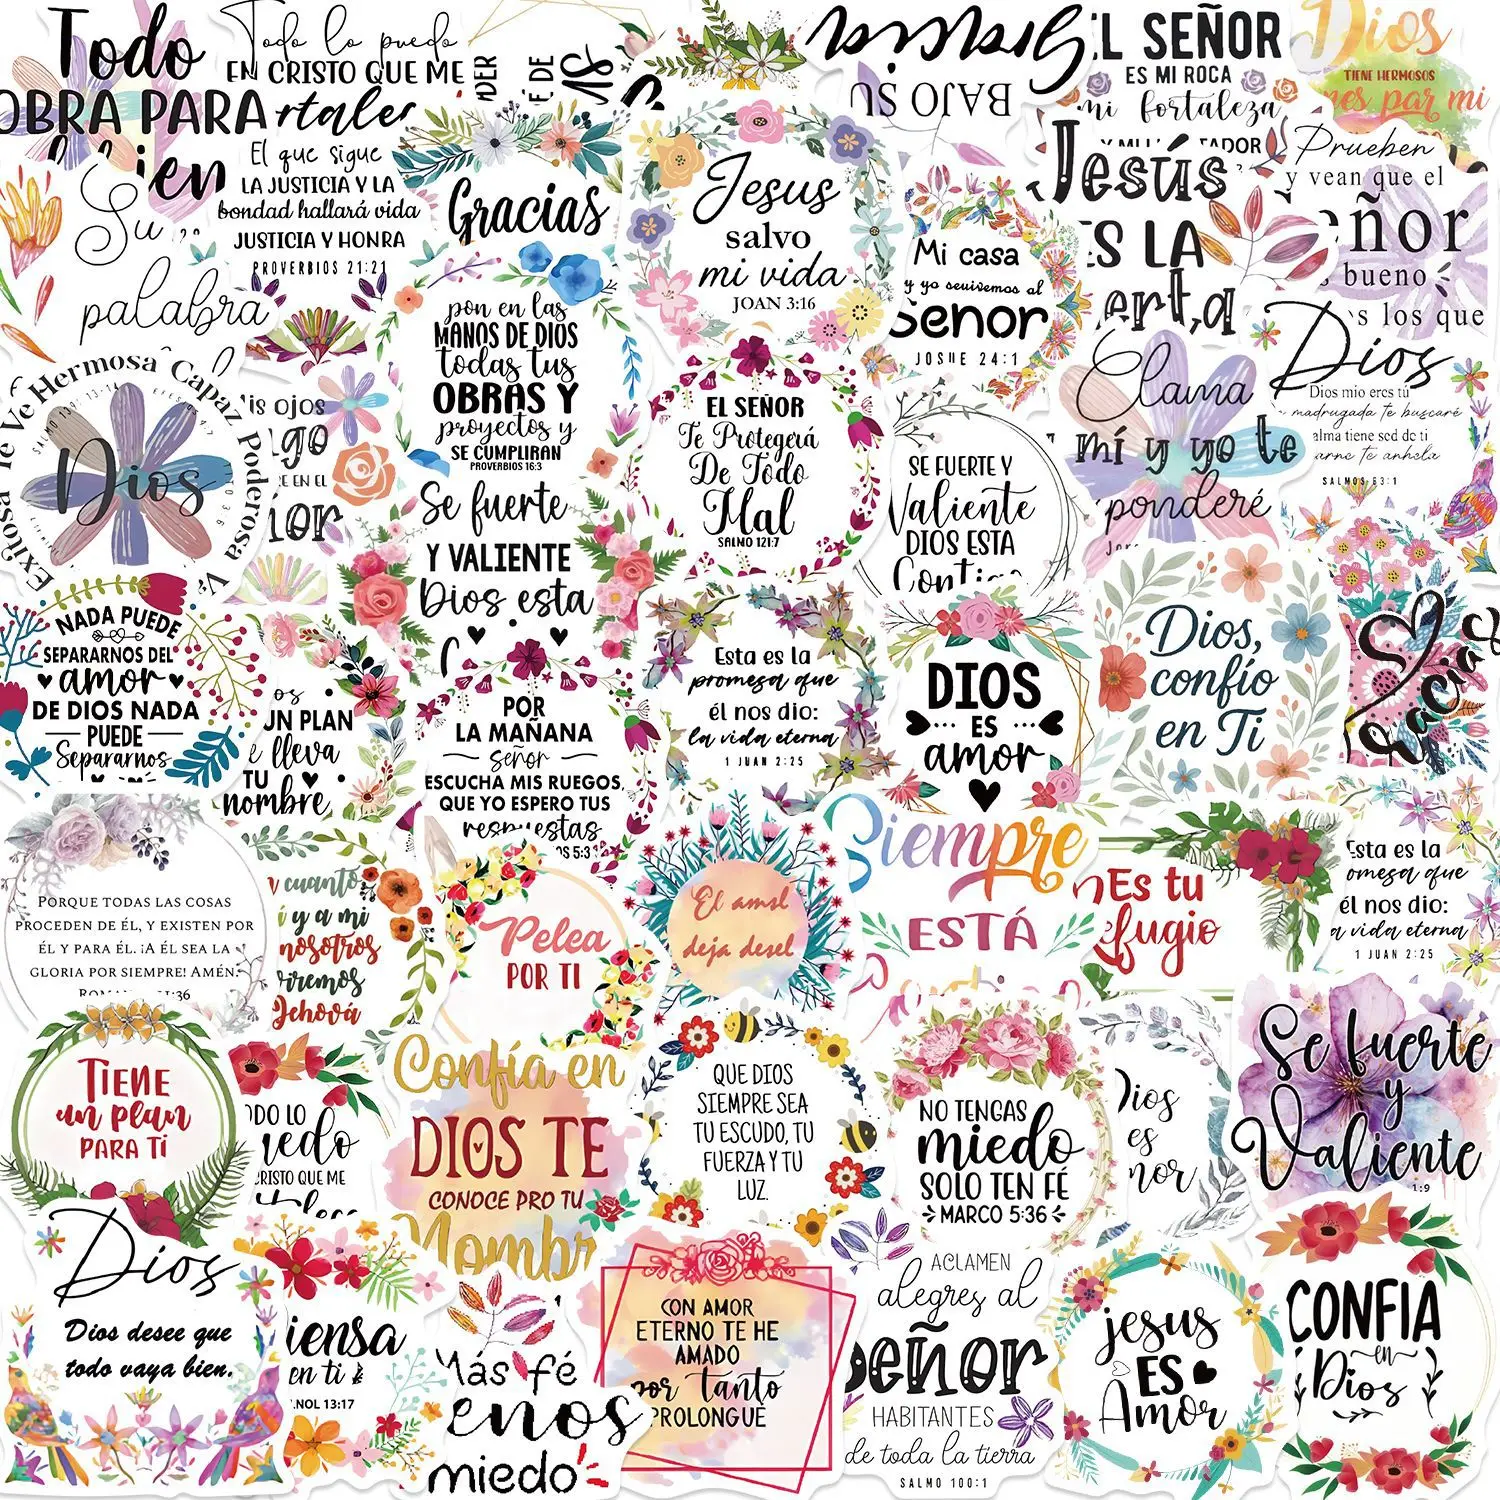 Todo
OBRA PARA
bien
Todo lo puedo
EN CRISTO QUE ME
BAJO SU
EL SEÑOR
ES MI ROCA
mi fortaleza
Dios
TIENE HERMOSOS
par mi
Su
palabra
El que sigue
LA JUSTICIA Y LA
bondad hallará vida
JUSTICIA Y HONRA
PROVERBIOS 21:21
Gracias
Jesus
salvo
mi vida
JOAN 3:16
Mi casa
y yo
Senor
JOSUE 24:1
Jesús
ES LA
Prueben
y vean que el
bueno
los que
Hermosa Capaz Poderosa
Dios
pon en las
MANOS DE DIOS
todas tus
OBRAS Y
proyectos y
SE CUMPLIRAN
PROVERBIOS 16:3
EL SEÑOR
Te Protegerá
De Todo
Mal
SALMO 121:7
SE FUERTE Y
Valiente
DIOS ESTA
Clama
mí y yo te
Dios
Dios mio eres tú
madrugada te buscaré
alma tiene sed de ti
te anhela
SALMOS 63:1
ojos
EN EL
Se fuerte
Y VALIENTE
Dios esta
NADA PUEDE
SEPARARNOS DEL
amor
DE DIOS NADA
PUEDE
Separarnos
UN PLAN
lleva
TU
nombre
POR
LA MAÑANA
señor
ESCUCHA MIS RUEGOS,
QUE YO ESPERO TUS
respuestas
5:3
Esta es la
promesa que
él nos dio:
la vida eterna
1 JUAN 2:25
DIOS
ES
amor
Dios,
confío
en Ti
Gracias
PORQUE TODAS LAS COSAS
PROCEDEN DE ÉL, Y EXISTEN POR
ÉL Y PARA ÉL. ¡A ÉL SEA LA
GLORIA POR SIEMPRE! AMÉN.
cuanto
y a mi
Jehová
Pelea
POR TI
El amsl
deja desel
Siempre
ESTÁ
Es tu
Esta es la
que
él nos dio:
vida eterna
1 JUAN 2:25
TIENE
un plan
PARA TI
LO
CRISTO QUE ME
Confía en
DIOS TE
CONOCE PRO TU
QUE DIOS
SIEMPRE SEA
TU ESCUDO, TU
FUERZA Y TU
LUZ.
NO TENGAS
miedo
SOLO TEN FÉ
MARCO 5:36
Dios
es
Se fuerte
y
Valiente
1:9
Dios
Dios desee que
todo vaya bien.
en ti
13:17
Más fé
miedo
CON AMOR
ETERNO TE HE
AMADO
por tanto
PROLONGUÉ
ACLAMEN
alegres al
señor
HABITANTES
de toda la tierra
SALMO 100:1
jesus
ES
Amor
CONFIA
en
Dios